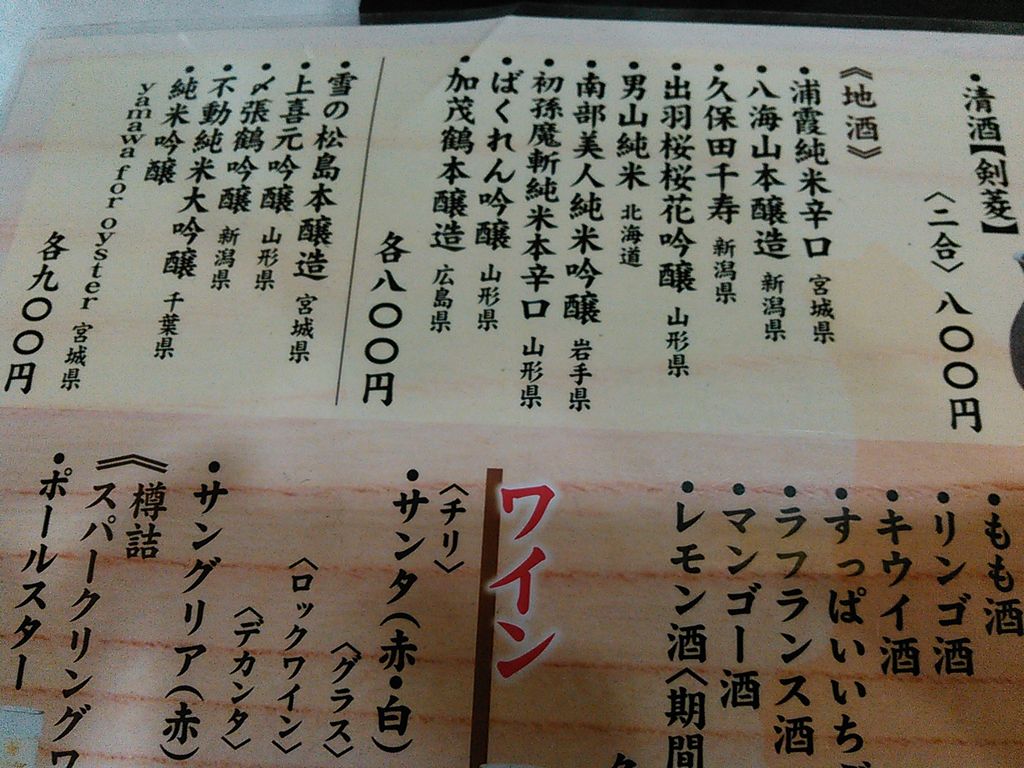 ・清酒【剣菱】
〈二合〉八〇〇円
《地酒》
・浦霞純米辛口 宮城県
・八海山本醸造 新潟県
・久保田千寿 新潟県
・出羽桜桜花吟醸 山形県
・男山純米 北海道
・南部美人純米吟醸 岩手県
・初孫魔斬純米本辛口 山形県
・ばくれん吟醸 山形県
・加茂鶴本醸造 広島県
各八〇〇円
・雪の松島本醸造 宮城県
・上喜元吟醸 山形県
・〆張鶴吟醸 新潟県
・不動純米大吟醸 千葉県
・純米吟醸
yamawa for oyster 宮城県
各九〇〇円
・もも酒
・リンゴ酒
・キウイ酒
・すっぱいいち
・ラフランス酒
・マンゴー酒
・レモン酒〈期間
ワイン
〈チリ〉
・サンタ(赤・白)
〈グラス〉
〈ロックワイン〉
〈デカンタ〉
・サングリア(赤)
《樽詰
スパークリングワ
・ポールスター